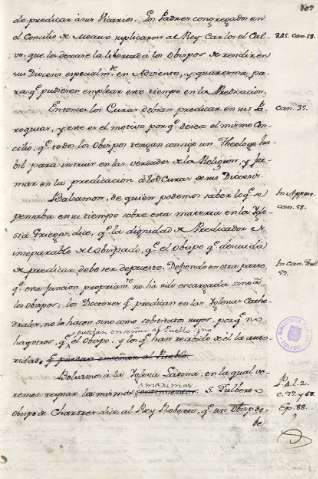 307
de predicar á sus Vicarios. Los Padres congregados en
el Concilio de Meaux suplicaron al Rey Carlos el Cal
vo, que les dexase la libertad á los Obispos de residir en
sus Diocesis especialm.te en Adviento, y quaresma, pa
ra q.e pudiesen emplear este tiempo en la Predicacion.
Can. 28.
Entonces los Curas debian predicar en sus Pa
Can. 35.
roquias, y este es el motivo por q.e desea el mismo Con
cilio, q.e todos los Obispos tengan consigo un Theologo ha
bil para instruir en las verdades de la Religion, y for
mar en la predicacion á los Curas de sus Diocesis
Balsamon, de quien podemos saber lo q.e se
pensaba en su tiempo sobre esta materia en la Igle
sia Griega, dice, q.e la dignidad de Predicador es
inseparable del Obispado, q.e el Obispo q.e descuida
de predicar debe ser depuesto. Diciendo en otra parte,
q.e esta funcion propriam.te no ha sido encargada sino á
los Obispos, los Doctores q.e predican en las Iglesias Cathe
drales, no lo hacen sino como substitutos suyos, porq.e no
hay otros, q.e el Obispo, y los q.e han recibido de él la auto
ridad,
Bolvamos á la Iglesia Latina, en la qual ve
remos reynar las mismas
maximas
S. Fulberto
Obispo de Chartres dice al Rey Roberto, q.e un Obispo de
Ep. 88.
be